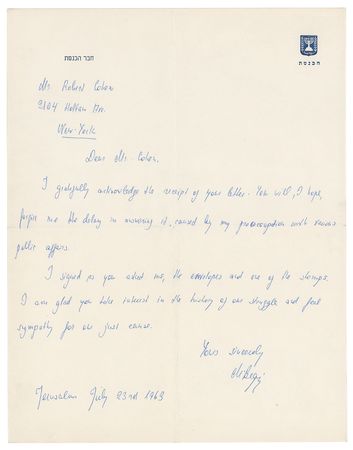 חבר הכנסת
הכנסת
Mr. Robert Cohen
2104 Holland Av.
New-York
Dear Mr. Cohen,
I gratefully acknowledge the receipt of your letter. You will, I hope,
forgive me the delay in answering it, caused by my preoccupation with various
public affairs.
I signed as you asked me, the envelopes and one of the stamps.
I am glad you take interest in the history of our struggle and feel
sympathy for our just cause.
Yours sincerely
M. Begin
Jerusalem July 23nd 1963